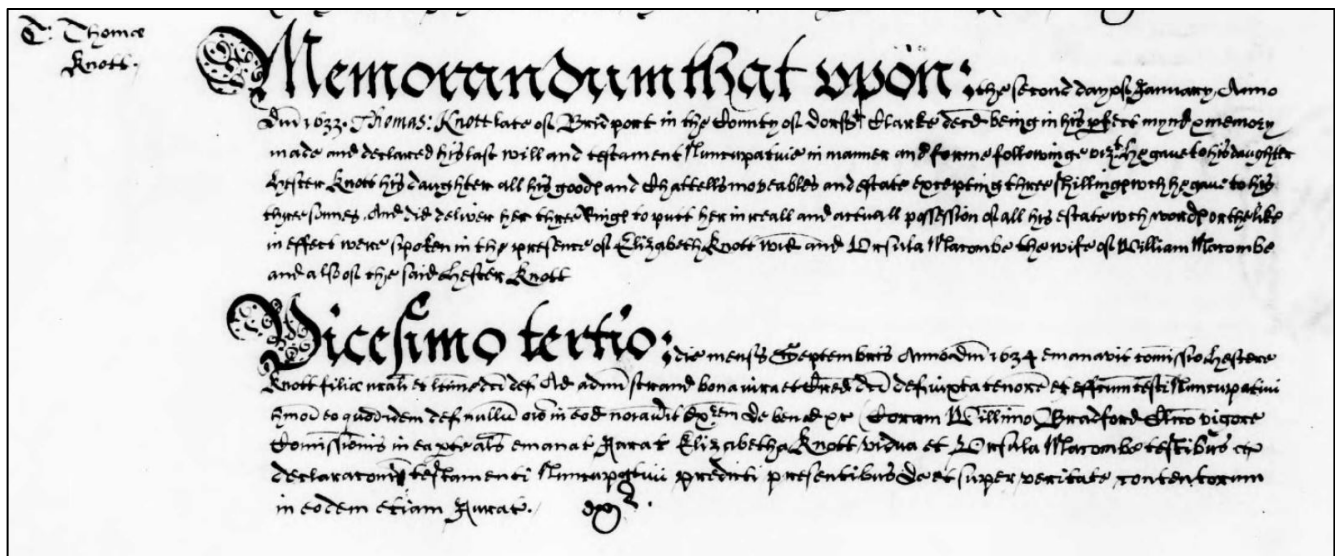 T: Thomae
Knott.
Memorandum that upon: the second day of January, Anno
Dm̄ 1633. Thomas: Knott late of Bridport in the County of Dorsᵗ Clarke decēd being in his pfect mynd & memory
made and declared his last will and testament Nuncupatvie in manner and forme followinge vizᵗ. he gave to his daughter
Hester Knott his daughter all his goods and Chattells moveables and estate excepting three shillings wch he gave to his
three sonnes. And did deliver her three Rings to putt her in reall and actuall possession of all his estate wch words or the like
in effect were spoken in the presence of Elizabeth Knott widd and Ursula Macombe the wife of William Macombe
and also of the said Hester Knott
Vicesimo tertio: die mensis Septembris Anno dm̄ 1634 emanavit comissio Hestere
Knott filiæ nrāli et ltīme dcī def. Ad admīstrand bona iura et Cred dcī def iuxta tenorē et effcum testī Nuncupativi
hmōi eo quod idem def nullum oīo in eod noīavit Exrem de bene &c Coram Willimo Bradford Clīco vigore
Comissionis in ea pte als emanat Jurat Elizabetha Knott vidua et Ursula Macombe testibus &
declaratōnis testamenti Nuncupativi predicti presentibus de et super veritate contentorum
in eodem etiam Jurat.